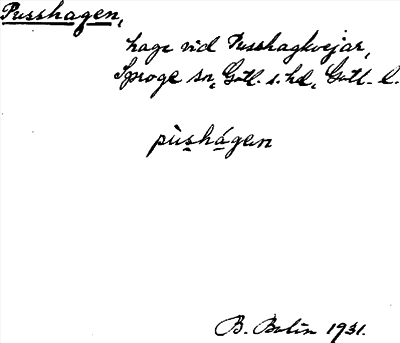 Pusshagen,
hage vid Pusshagkvejar,
Sproge sn, Gotl. s. hd, Gotl. l.
pùshágen
B. Bolin 1931.